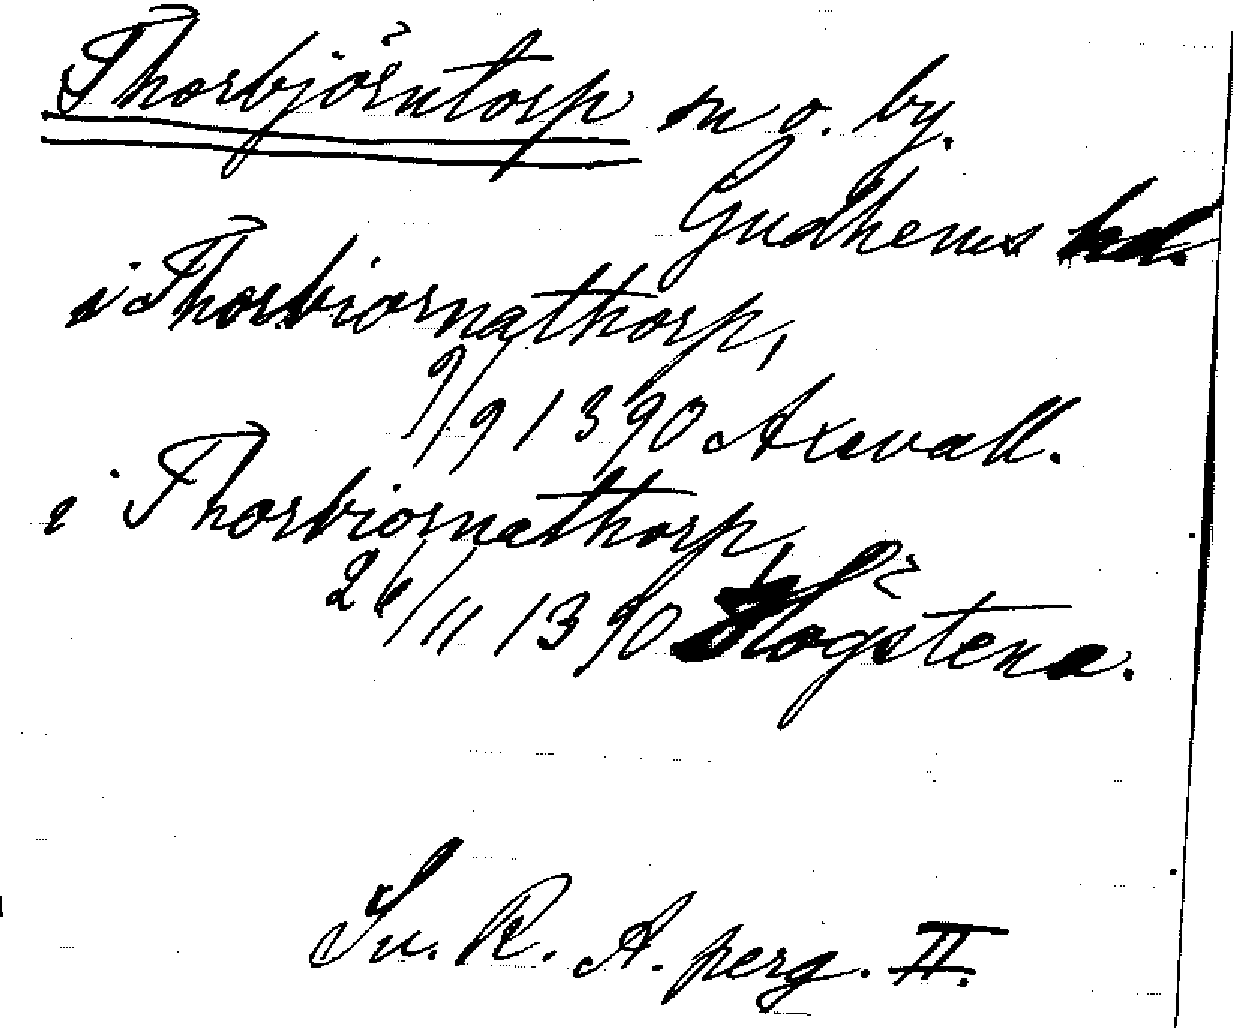 Thorbjörntorp sn o. by.
Gudhems hd.
i Thorbiornathorp,
9/9 1390 Axevall.
i Thorbiornathorp,
26/11 1390 Högstena.
Sv. R. A. perg. II.